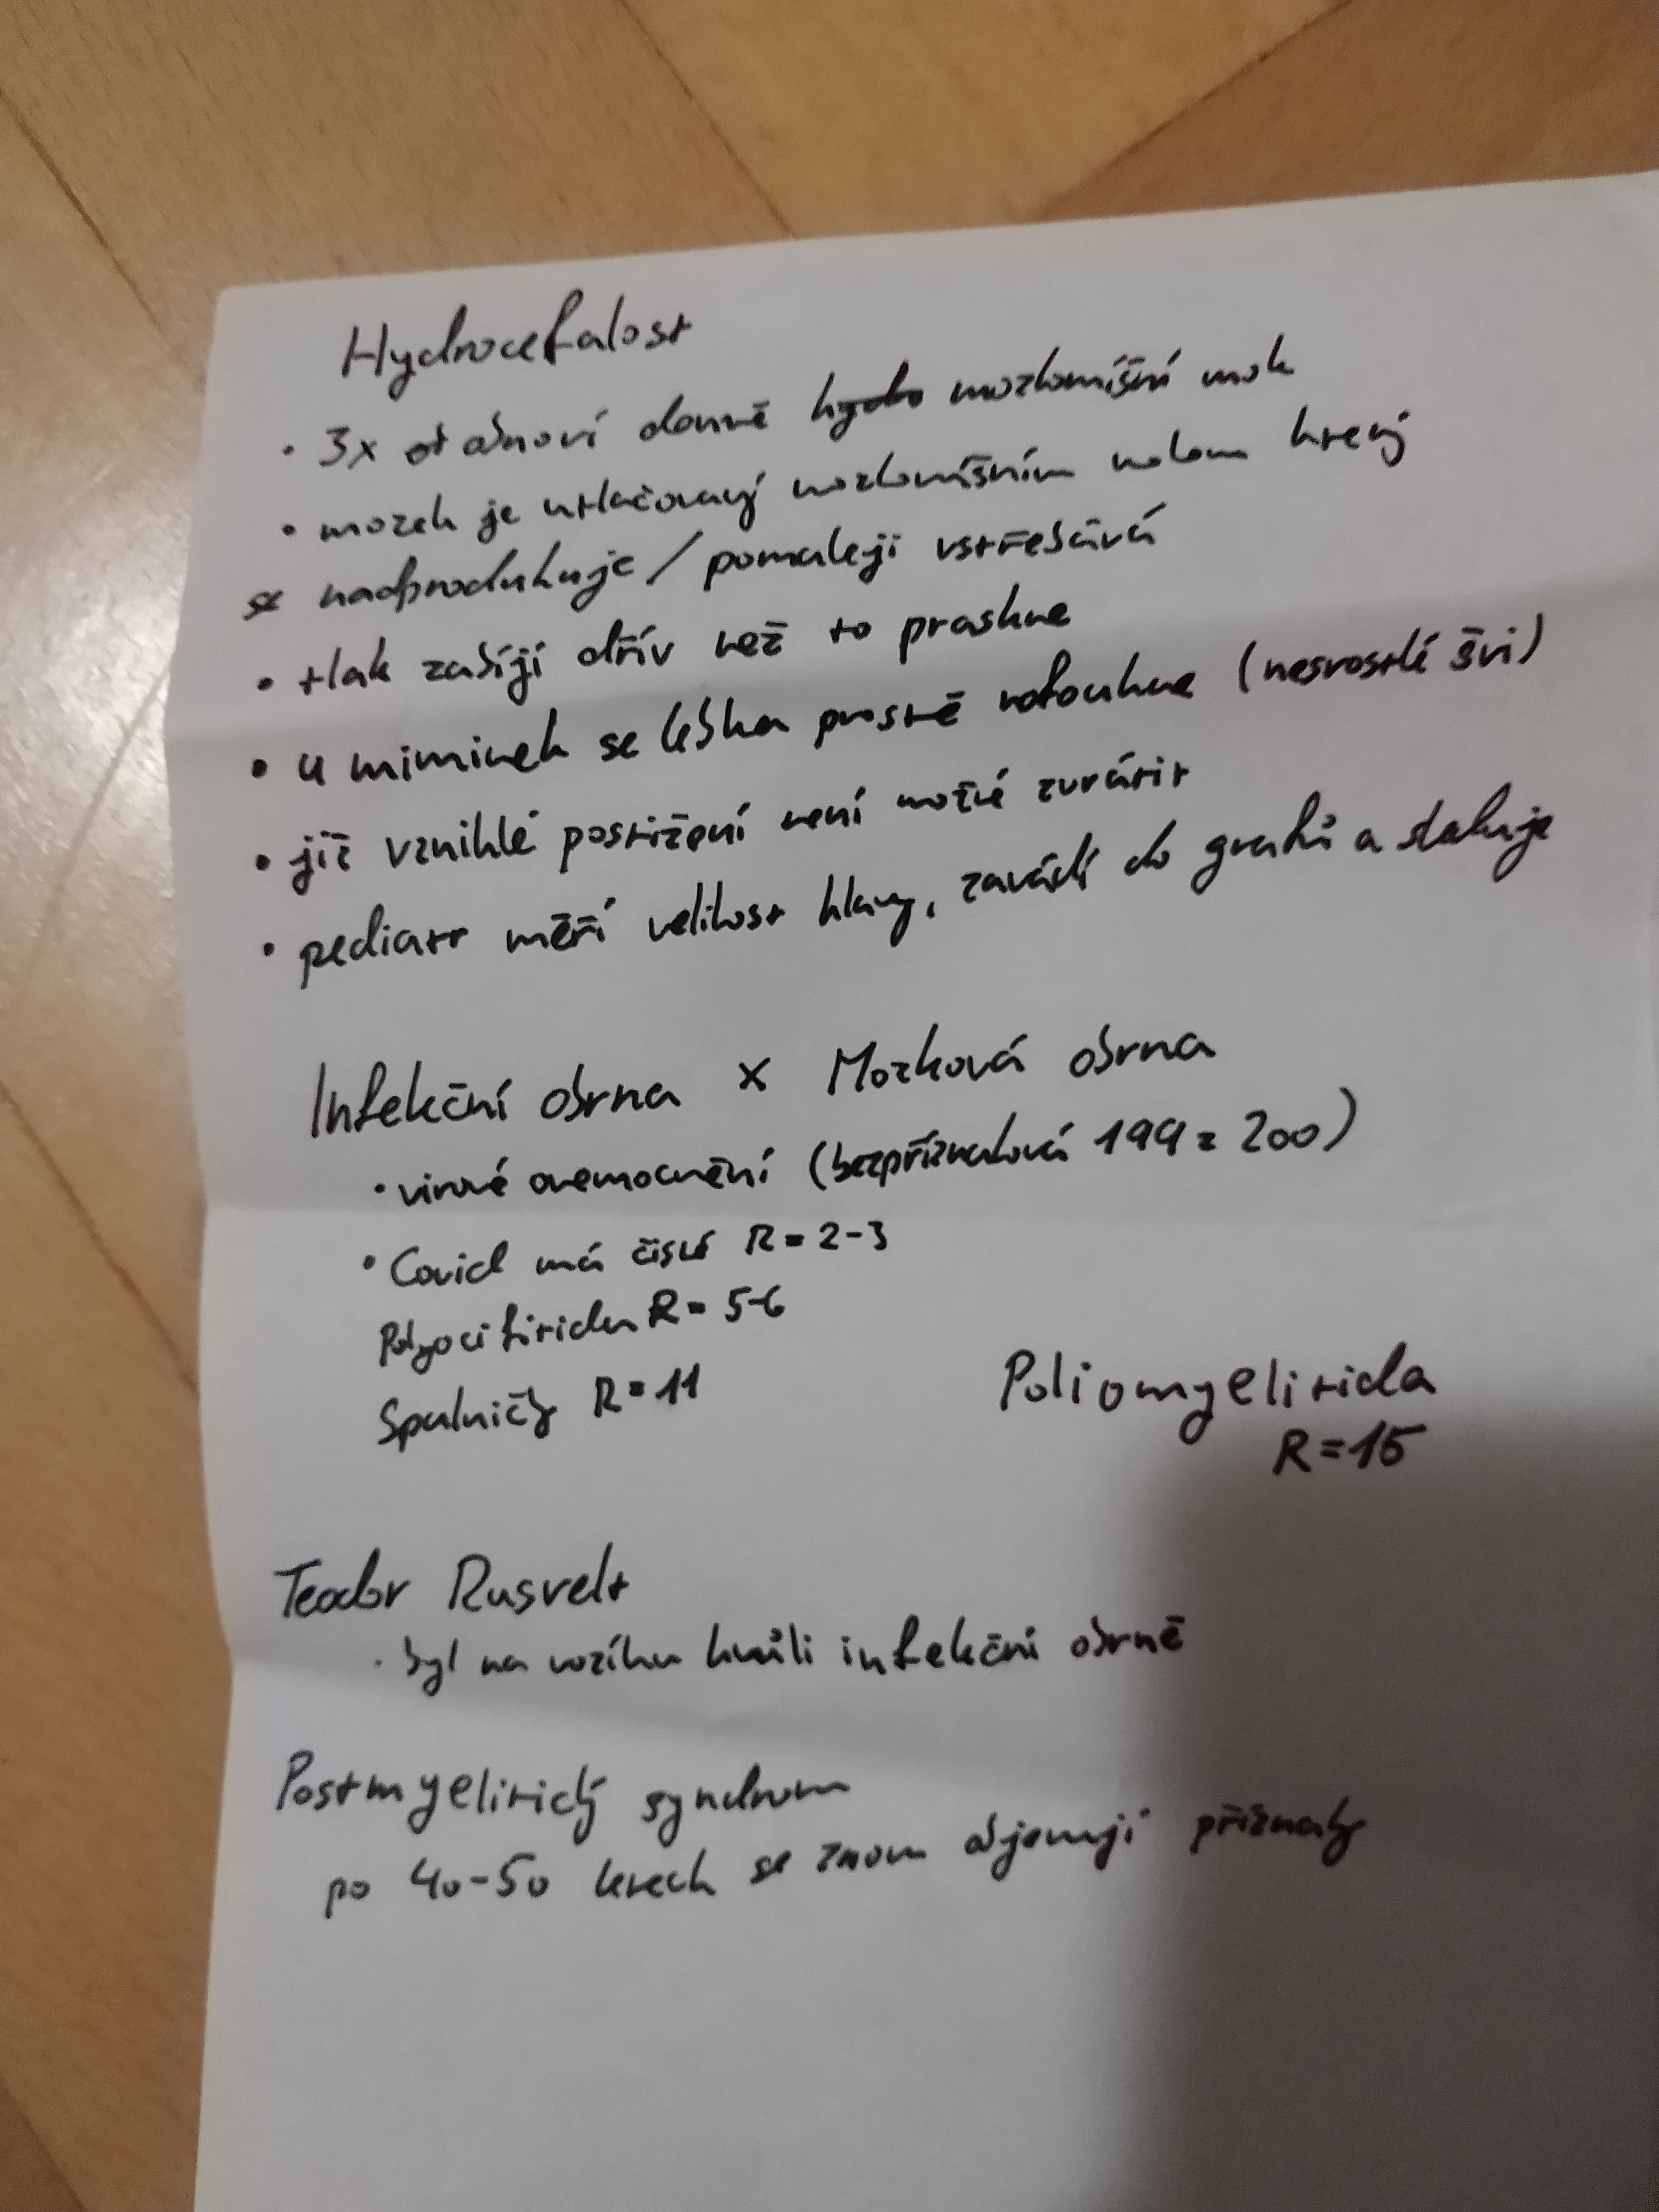 Hydrocefalost
· 3x obnoví denně hydo mozkomíšní mok
· mozek je utlačovaný mozkomíšním mokem který
se nadprodukuje / pomaleji vstřebává
· tlak zabíjí dřív než to praskne
· u miminek se lebka prostě nafoukne (nesrostlé švi)
· již vzniklé postižení není možné zvrátit
· pediatr měří velikost hlavy, zavádí do grafů a sleduje
Infekční obrna x Mozková obrna
· virové onemocnění (bezpříznaková 199 z 200)
· Covid má číslo R = 2-3
R = 5-6
Spalničky R = 11
Poliomyelitida
R = 15
Teodor Rusvelt
· byl na vozíku kvůli infekční obrně
Postmyelitický syndrom
po 40-50 letech se znovu objevují přížnaky